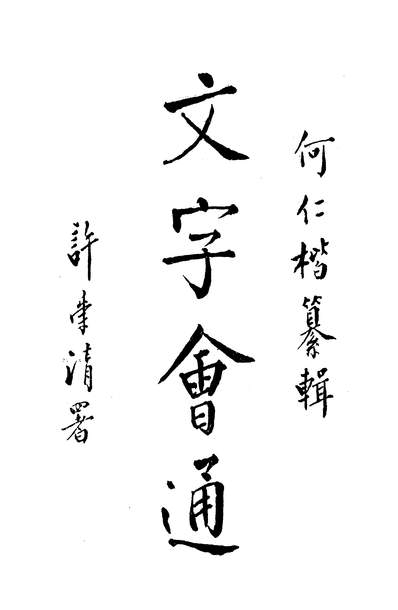 何仁楷纂輯
文字會通
許清署